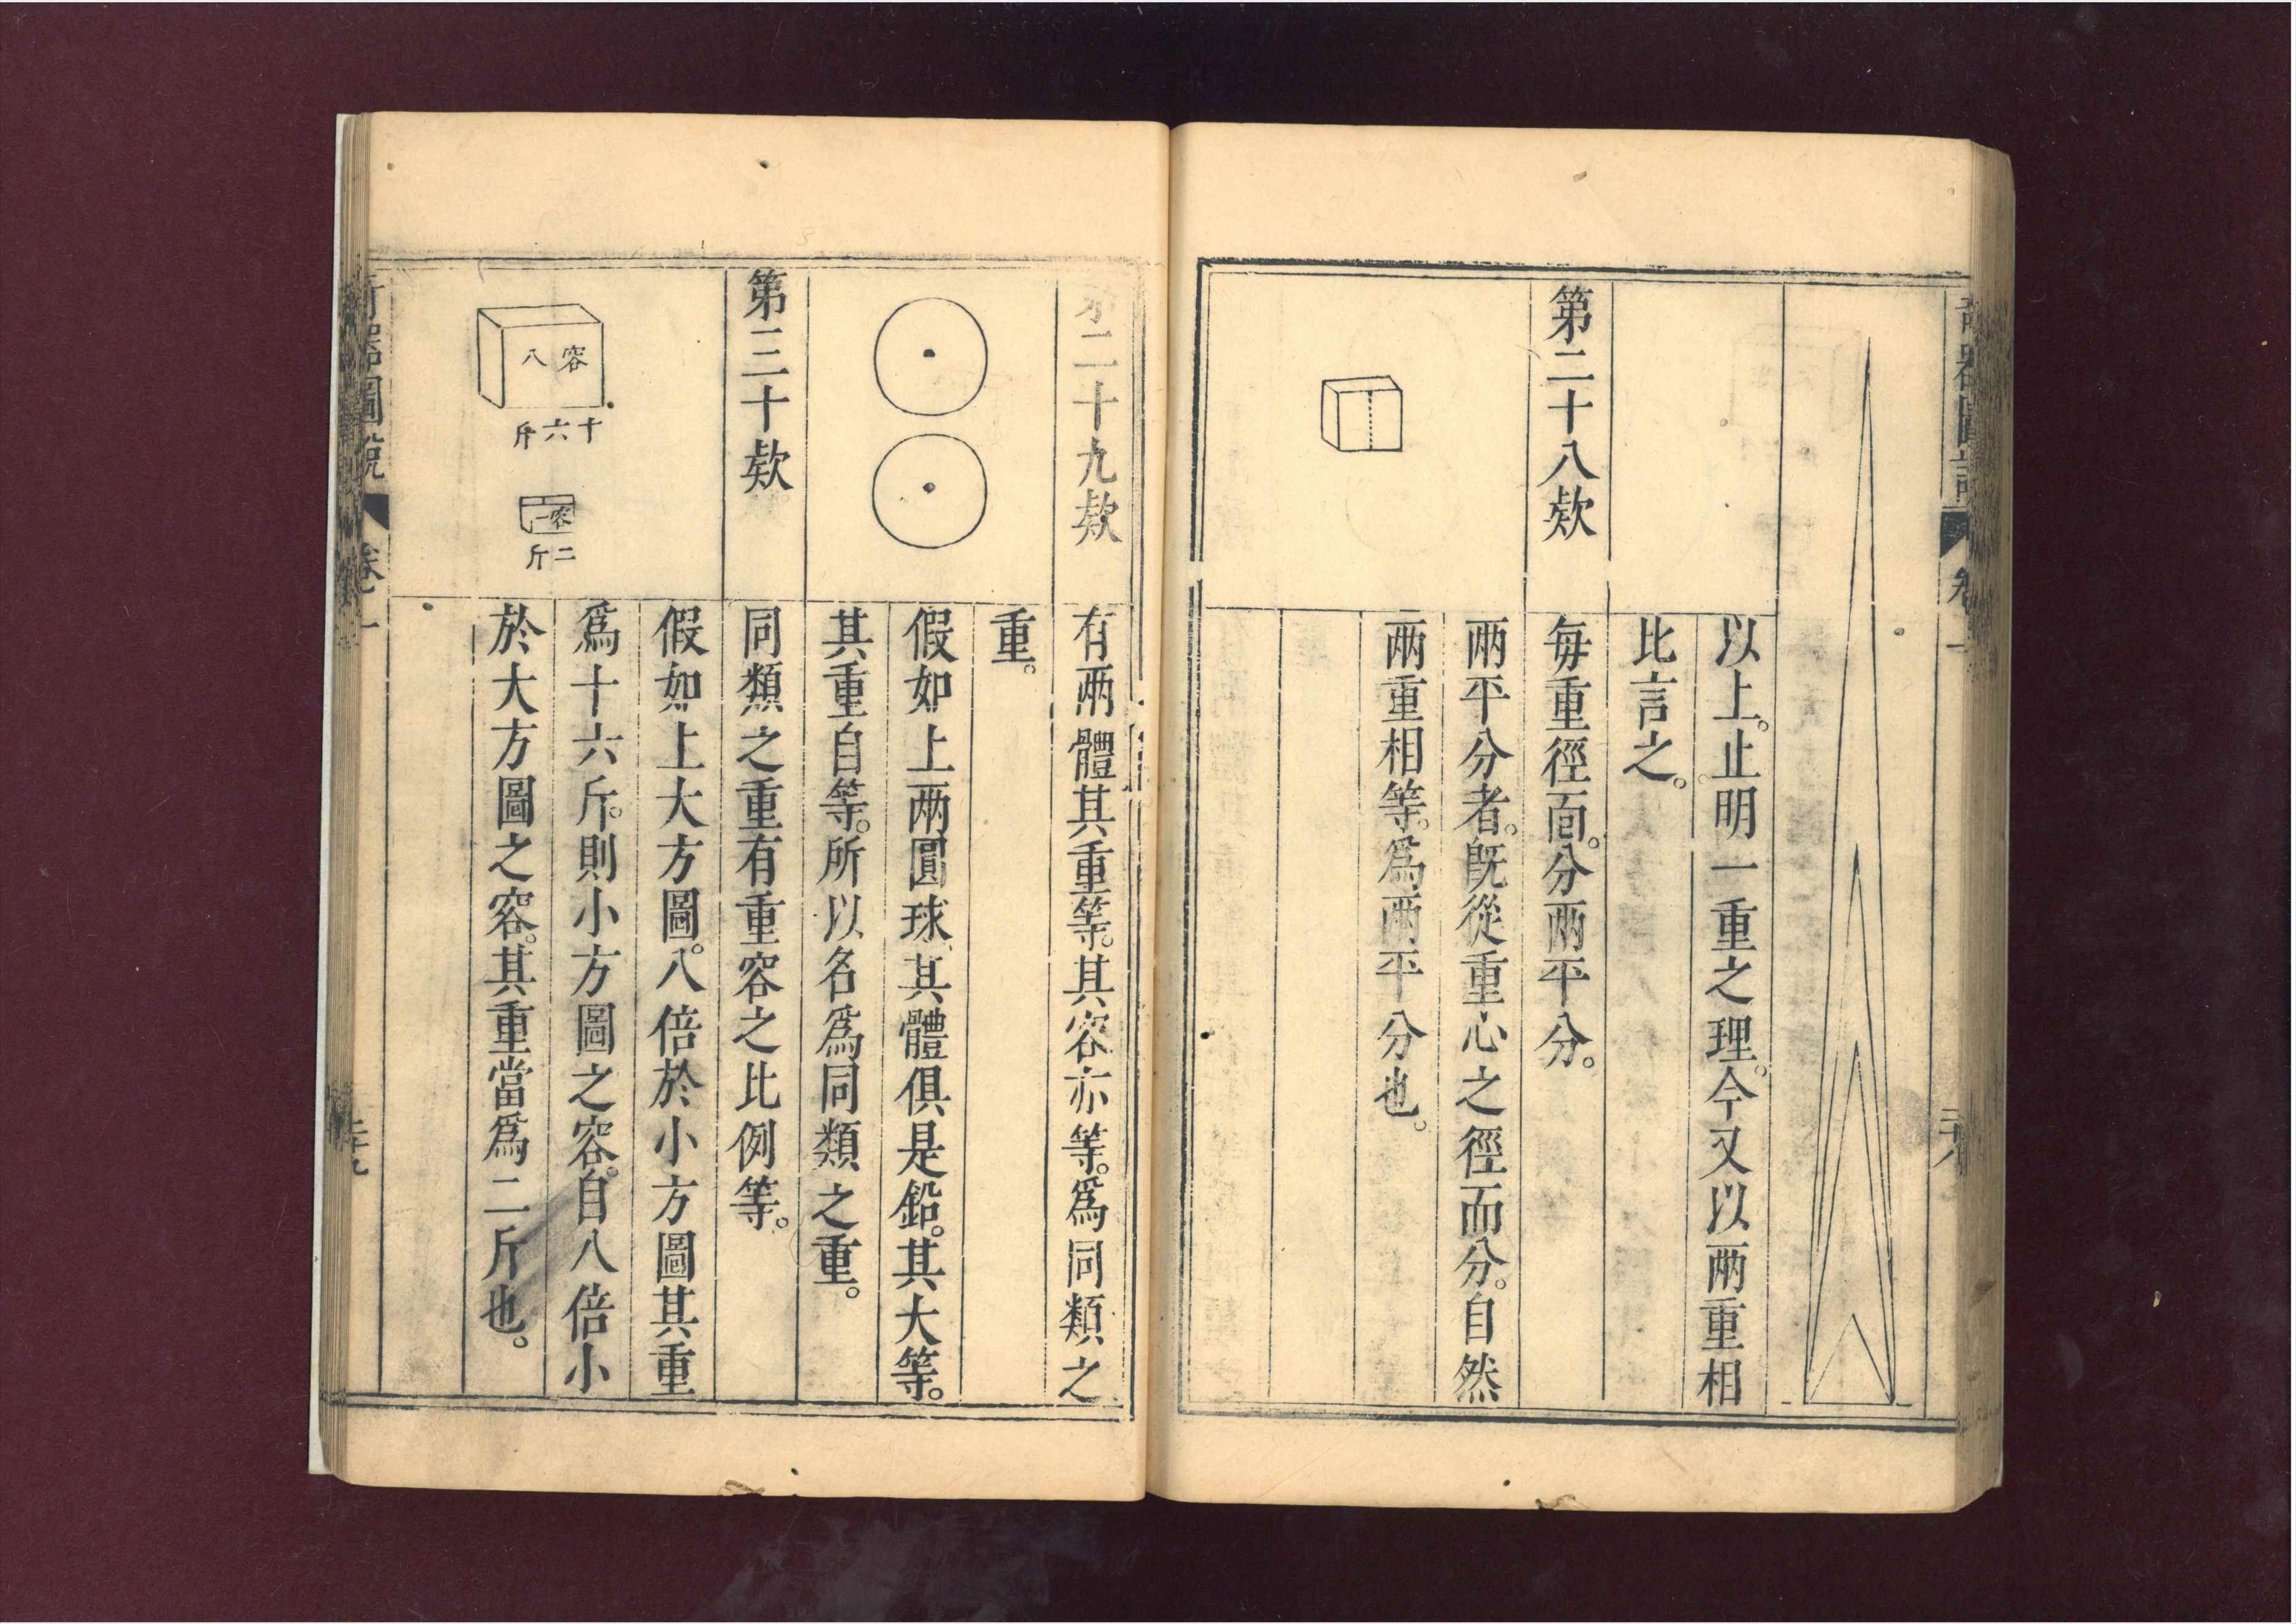 奇器圖說
卷一
三十八
以上。止明一重之理。今又以兩重相
比言之。
第二十八欵
每重徑面。分兩平分。
兩平分者。旣從重心之徑而分。自然
兩重相等。爲兩平分也。
第二十九欵
有兩體其重等。其容亦等。爲同類之
重。
假如上兩圓球。其體俱是鉛。其大等。
其重自等。所以名爲同類之重。
第三十欵
同類之重有重容之比例等。
容八
十六斤
容一
二斤
假如上大方圖。八倍於小方圖其重
爲十六斤。則小方圖之容。自八倍小
於大方圖之容。其重當爲二斤也。
奇器圖說
卷一
三十九